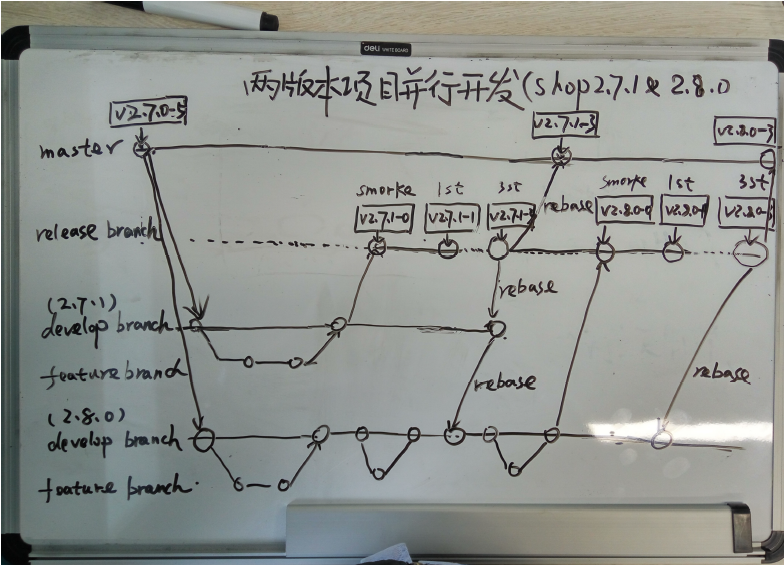 deli WHITEBOARD
两版本项目并行开发(shop2.7.1 & 2.8.0
V2.7.0-5
V2.7.1-3
V2.8.0-3
master
smorke 1st 3st
smorke 1st 3st
V2.7.1-0 V2.7.1-1 V2.7.1-3
rebase
V2.8.0-0
release branch
rebase
(2.7.1)
develop branch
feature branch
rebase
rebase
(2.8.0)
develop branch
feature branch